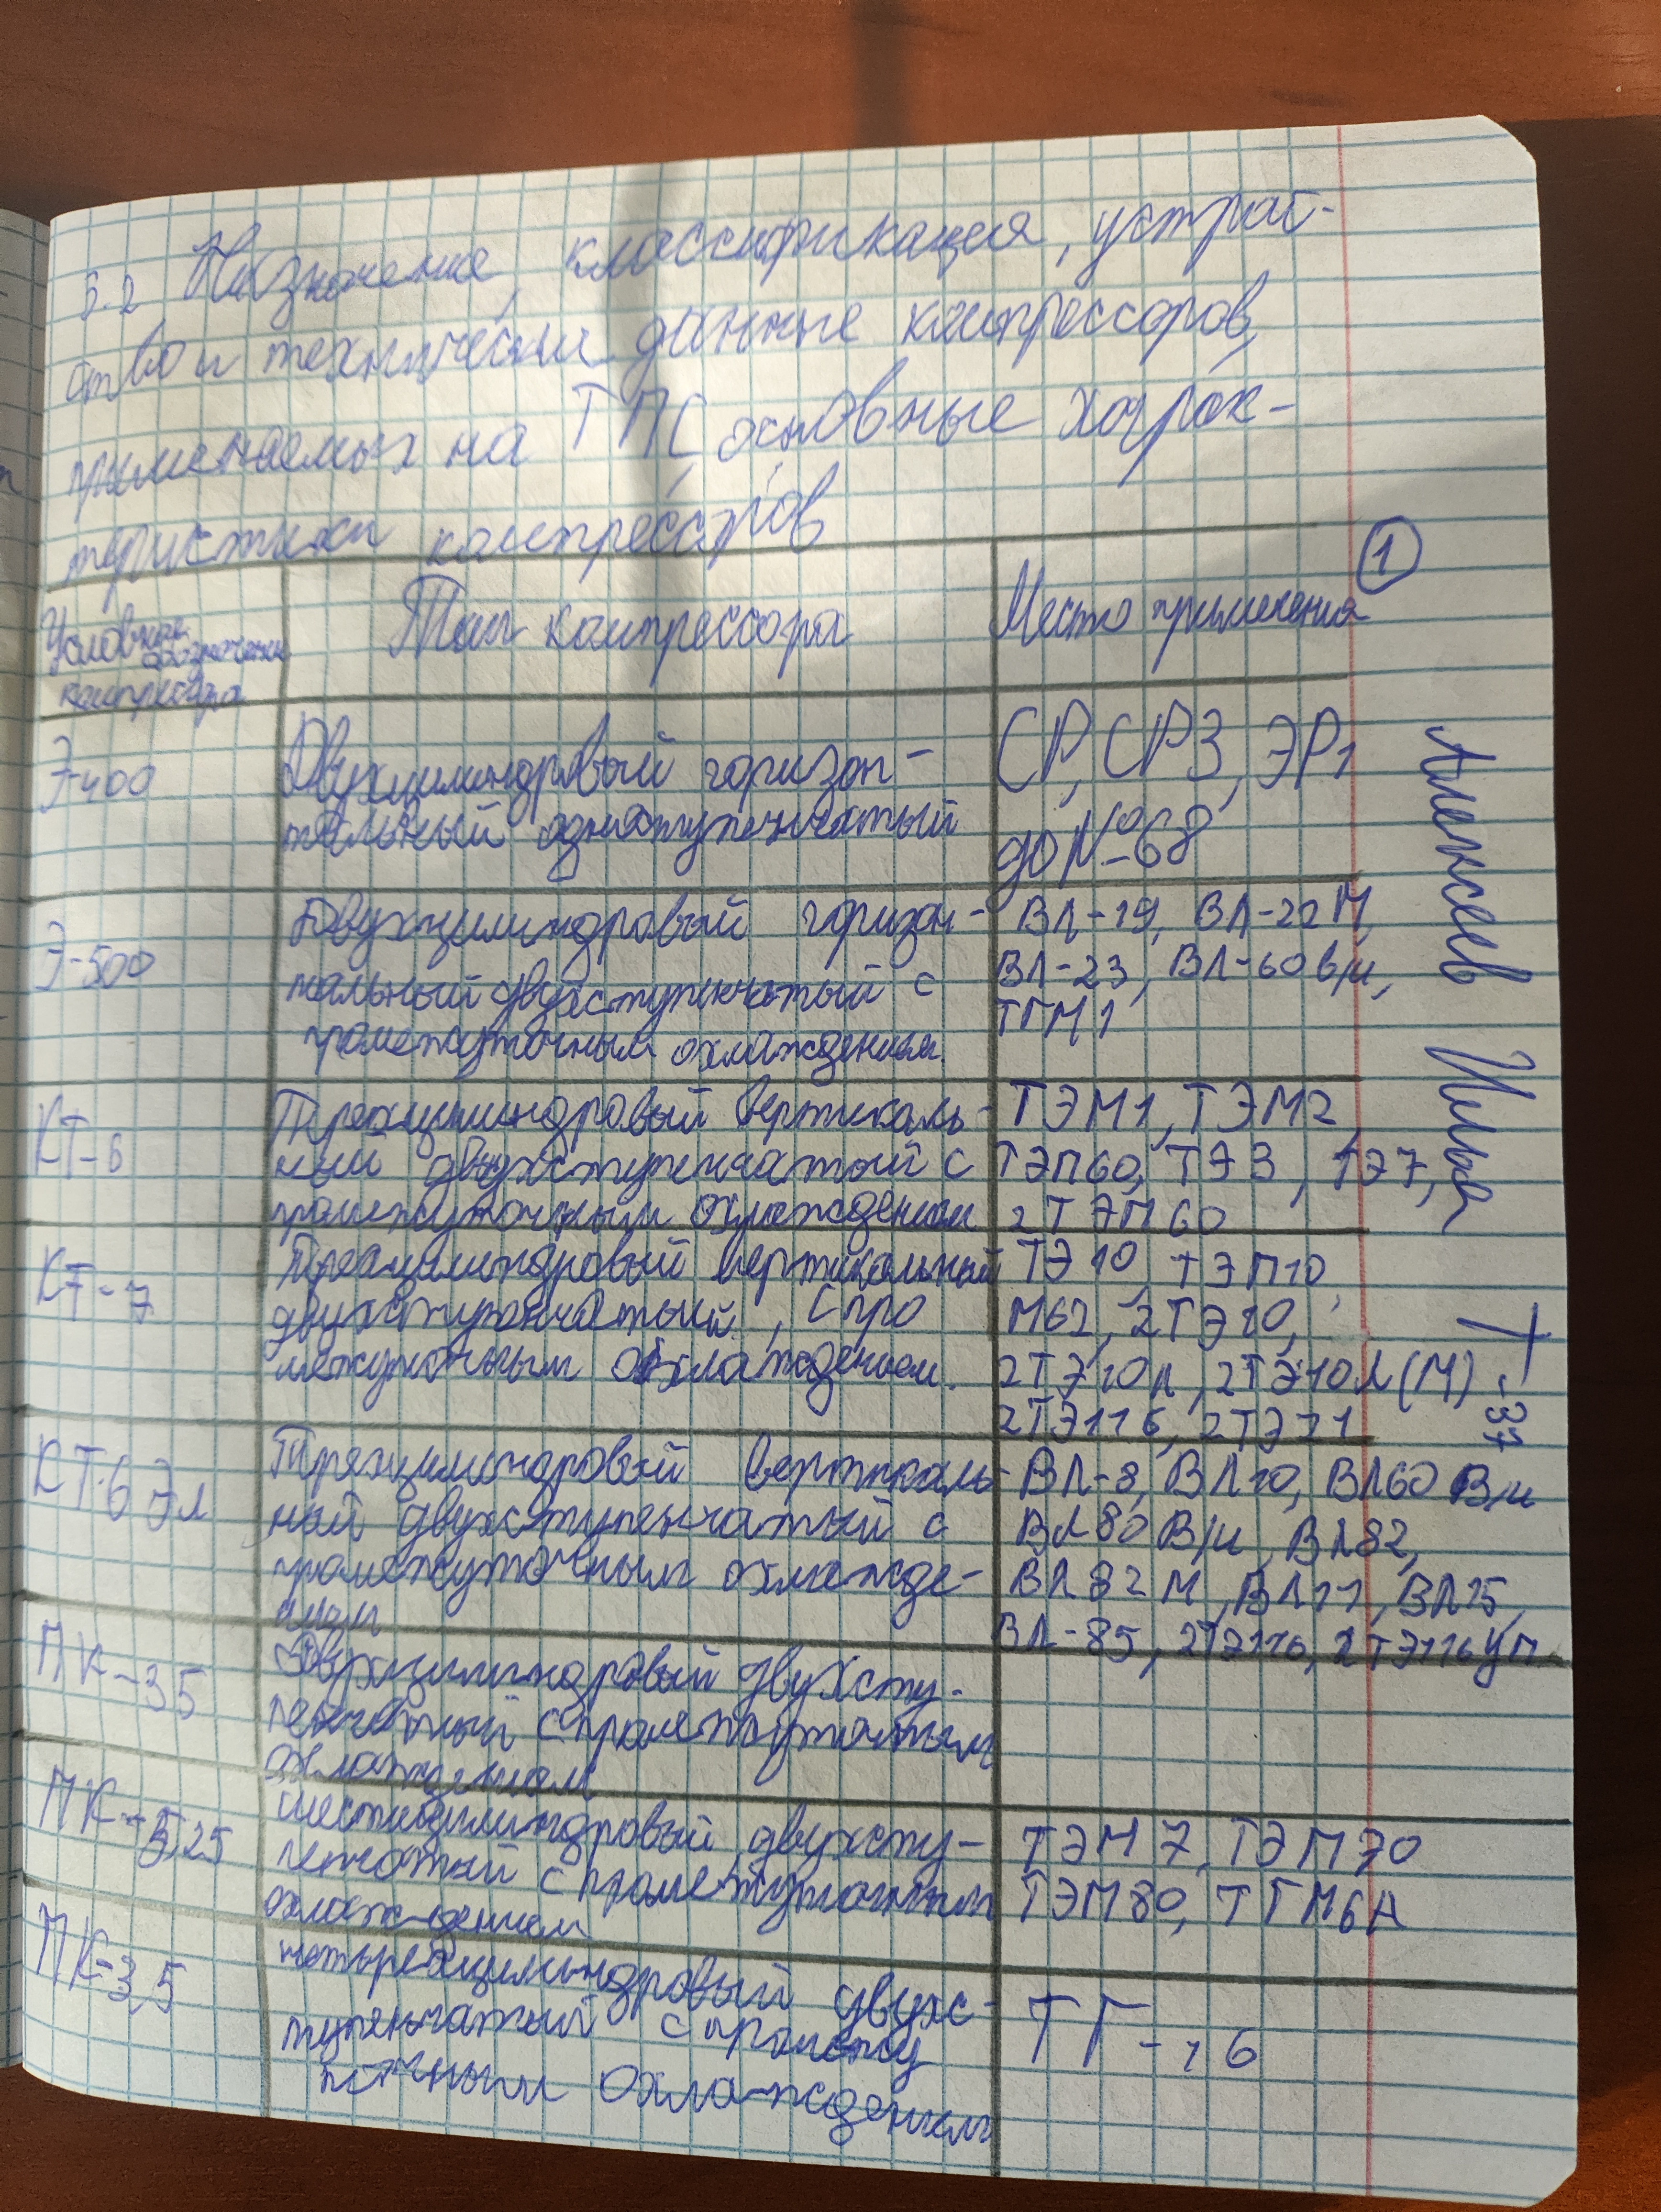 5.2 Назначение, классификация, устрой-
ство и технические данные компрессоров,
применяемых на ТПС, основные харак-
теристики компрессоров
1
Условное обозначение компрессора
Тип компрессора
Место применения
Э-400
Двухцилиндровый горизон-
тальный одноступенчатый
СР, СР3, ЭР1
до №68
Э-500
Двухцилиндровый горизон-
тальный двухступенчатый с
промежуточным охлаждением.
ВЛ-19, ВЛ-22М,
ВЛ-23, ВЛ-60в/и,
ТГМ1
КТ-6
Трехцилиндровый вертикаль-
ный двухступенчатый с
промежуточным охлаждением
ТЭМ1, ТЭМ2,
ТЭП60, ТЭ3, ТЭ7,
2ТЭП60
КТ-7
Трехцилиндровый вертикальный
двухступенчатый, с про
межуточным охлаждением.
ТЭ10, ТЭП10,
М62, 2ТЭ10,
2ТЭ10Л, 2ТЭ10Л(М)
2ТЭ116, 2ТЭ21
КТ-6 Эл
Трехцилиндровый вертикаль-
ный двухступенчатый с
промежуточным охлажде-
нием
ВЛ-8, ВЛ10, ВЛ60 В/и
ВЛ80 В/и, ВЛ82,
ВЛ82М, ВЛ11, ВЛ15,
ВЛ-85, 2ТЭ116, 2ТЭ116УП
ПК-35
Двухцилиндровый двухсту-
пенчатый с промежуточным
охлаждением
ПК-5,25
Шестицилиндровый двухсту-
пенчатый с промежуточным
охлаждением
ТЭМ7, ТЭМ70
ТЭМ80, ТГМ6А
ПК-3,5
четырехцилиндровый двухс-
тупенчатый с промежу
точным охлаждением
ТГ-16
Алексеев Илья Т-37